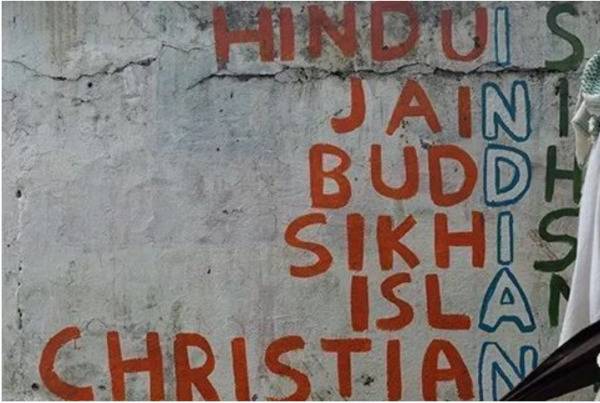 HINDUIS
JAINI
BUDDH
SIKHIS
ISLAM
CHRISTIAN